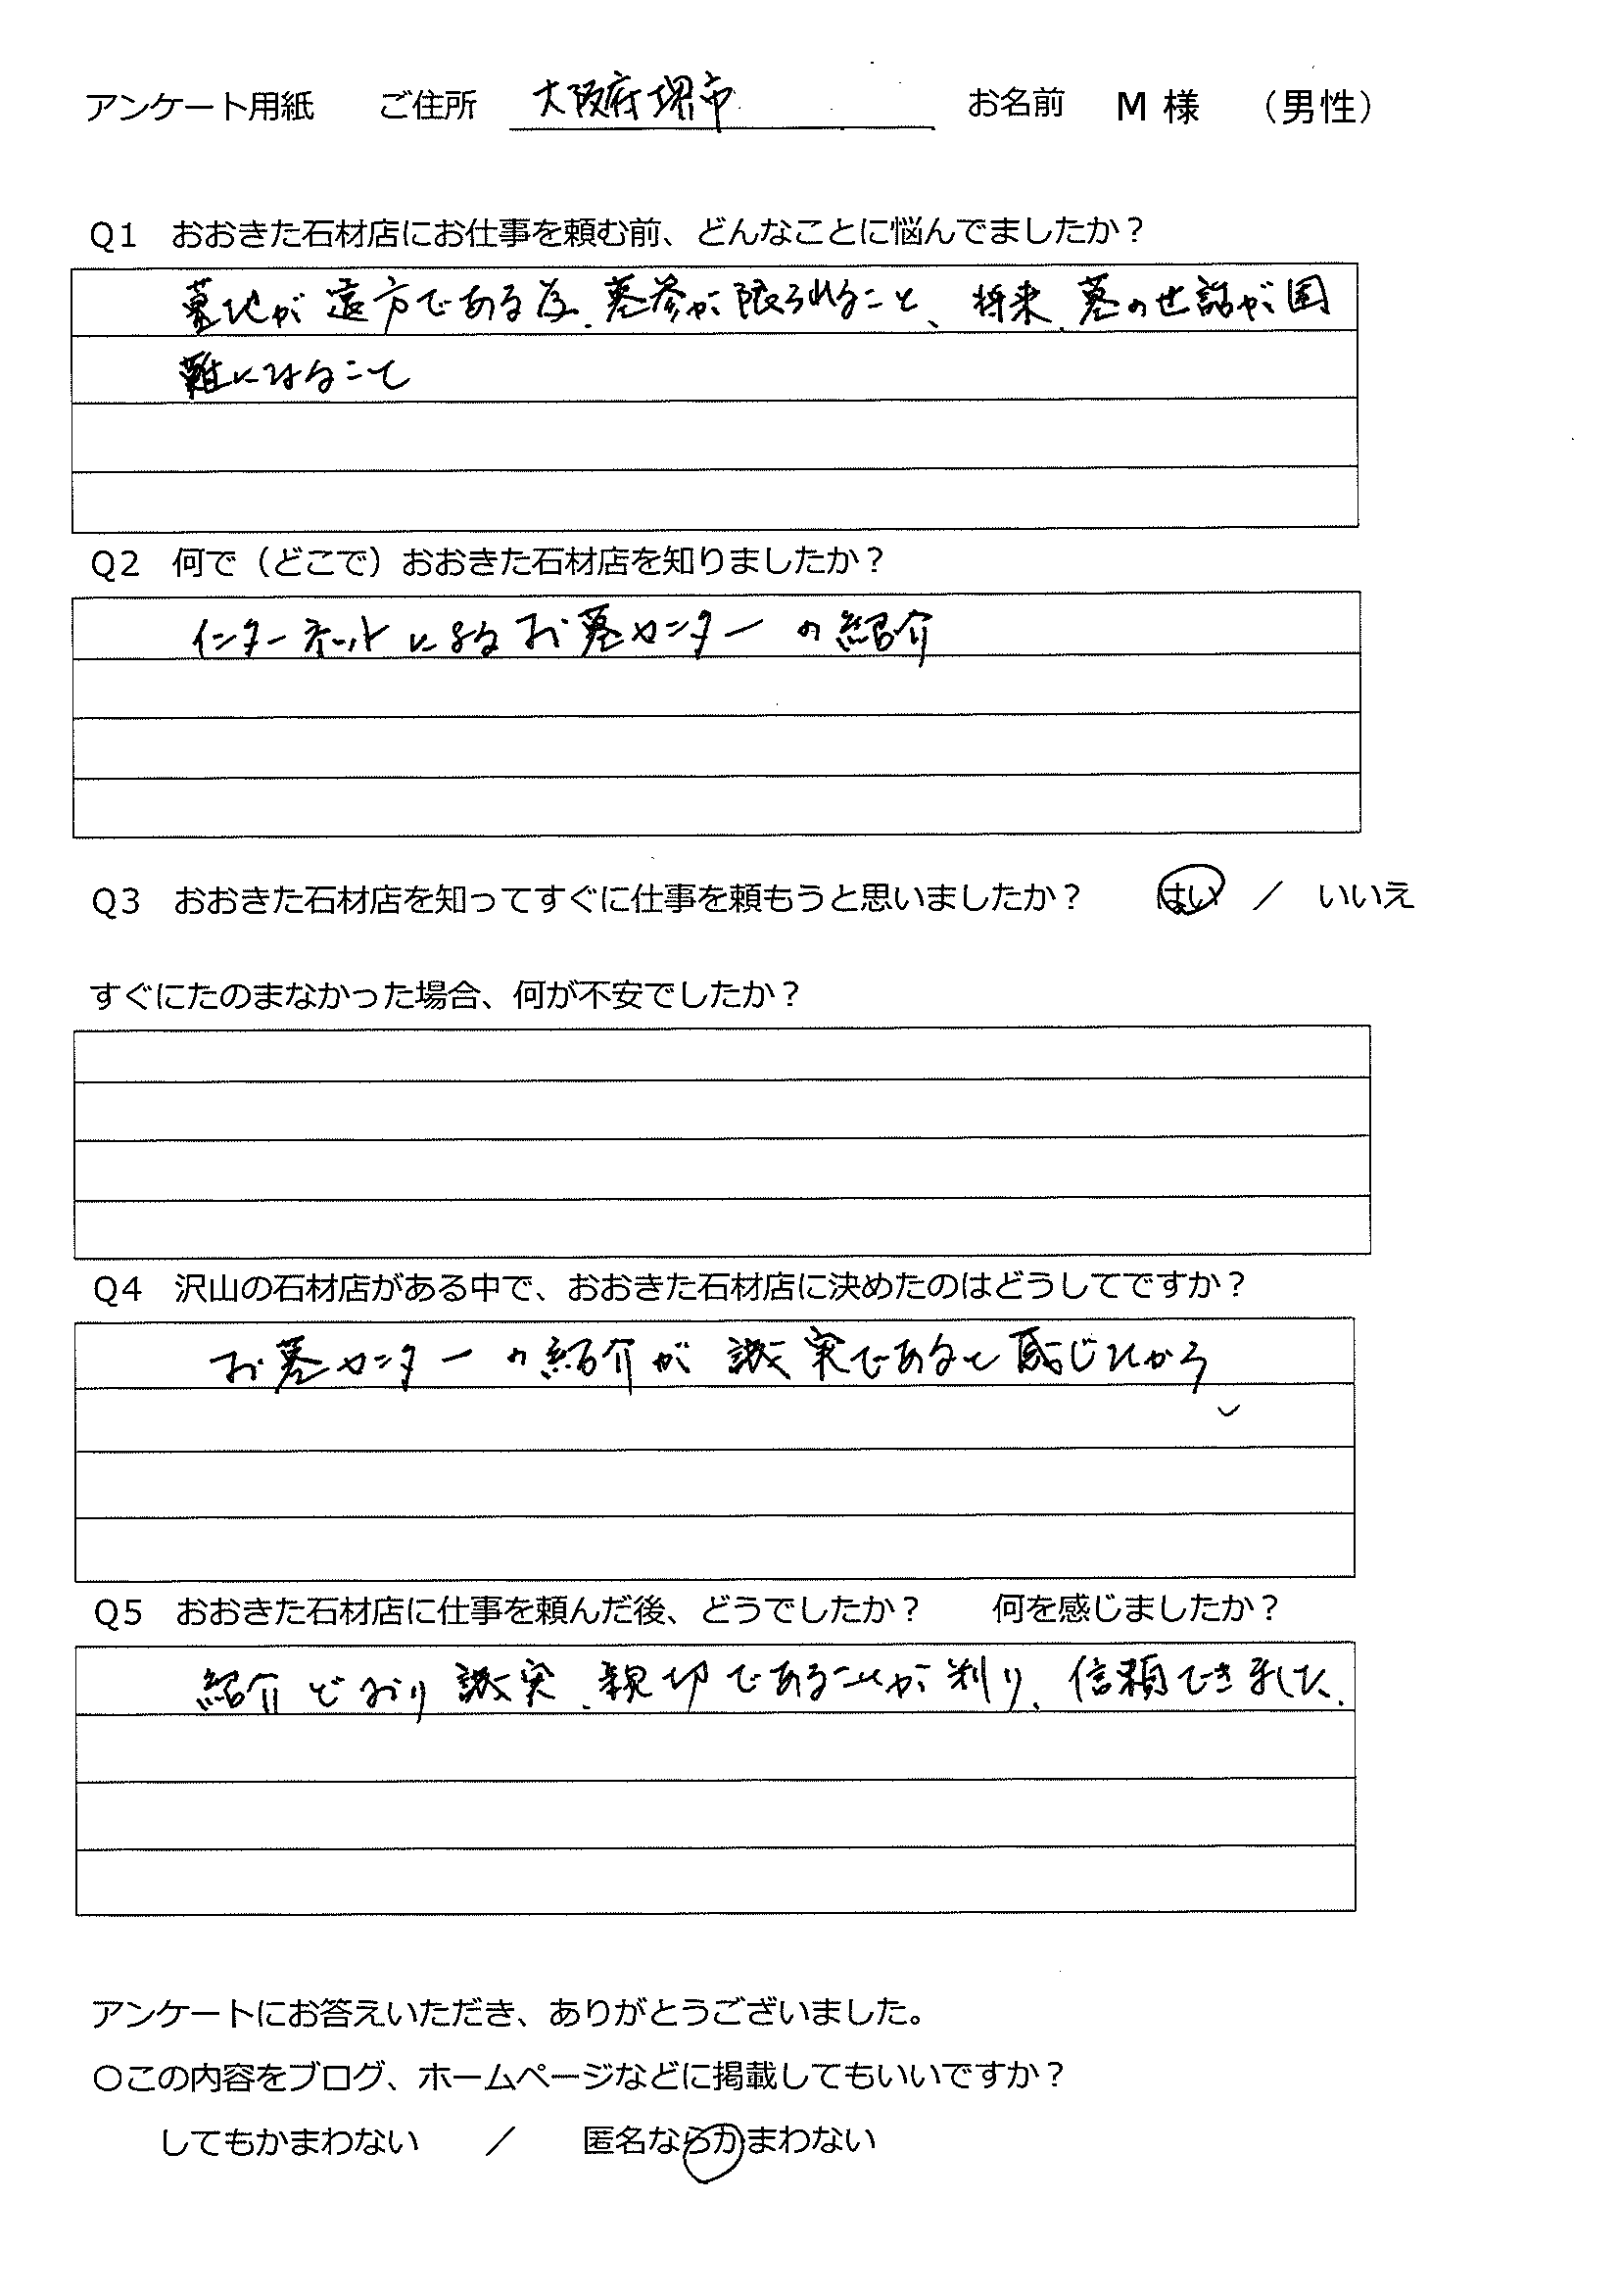 アンケート用紙 ご住所 大阪府堺市 お名前 M 様 （男性）
Q1 おおきた石材店にお仕事を頼む前、どんなことに悩んでましたか？
墓地が遠方である為、墓参が限られること、将来、墓の世話が困
難になること
Q2 何で（どこで）おおきた石材店を知りましたか？
インターネットによるお墓センターの紹介
Q3 おおきた石材店を知ってすぐに仕事を頼もうと思いましたか？ はい ／ いいえ
すぐにたのまなかった場合、何が不安でしたか？
Q4 沢山の石材店がある中で、おおきた石材店に決めたのはどうしてですか？
お墓センターの紹介が誠実であると感じたから
Q5 おおきた石材店に仕事を頼んだ後、どうでしたか？ 何を感じましたか？
紹介どおり誠実、親切であることが判り、信頼できました。
アンケートにお答えいただき、ありがとうございました。
○この内容をブログ、ホームページなどに掲載してもいいですか？
してもかまわない ／ 匿名ならかまわない